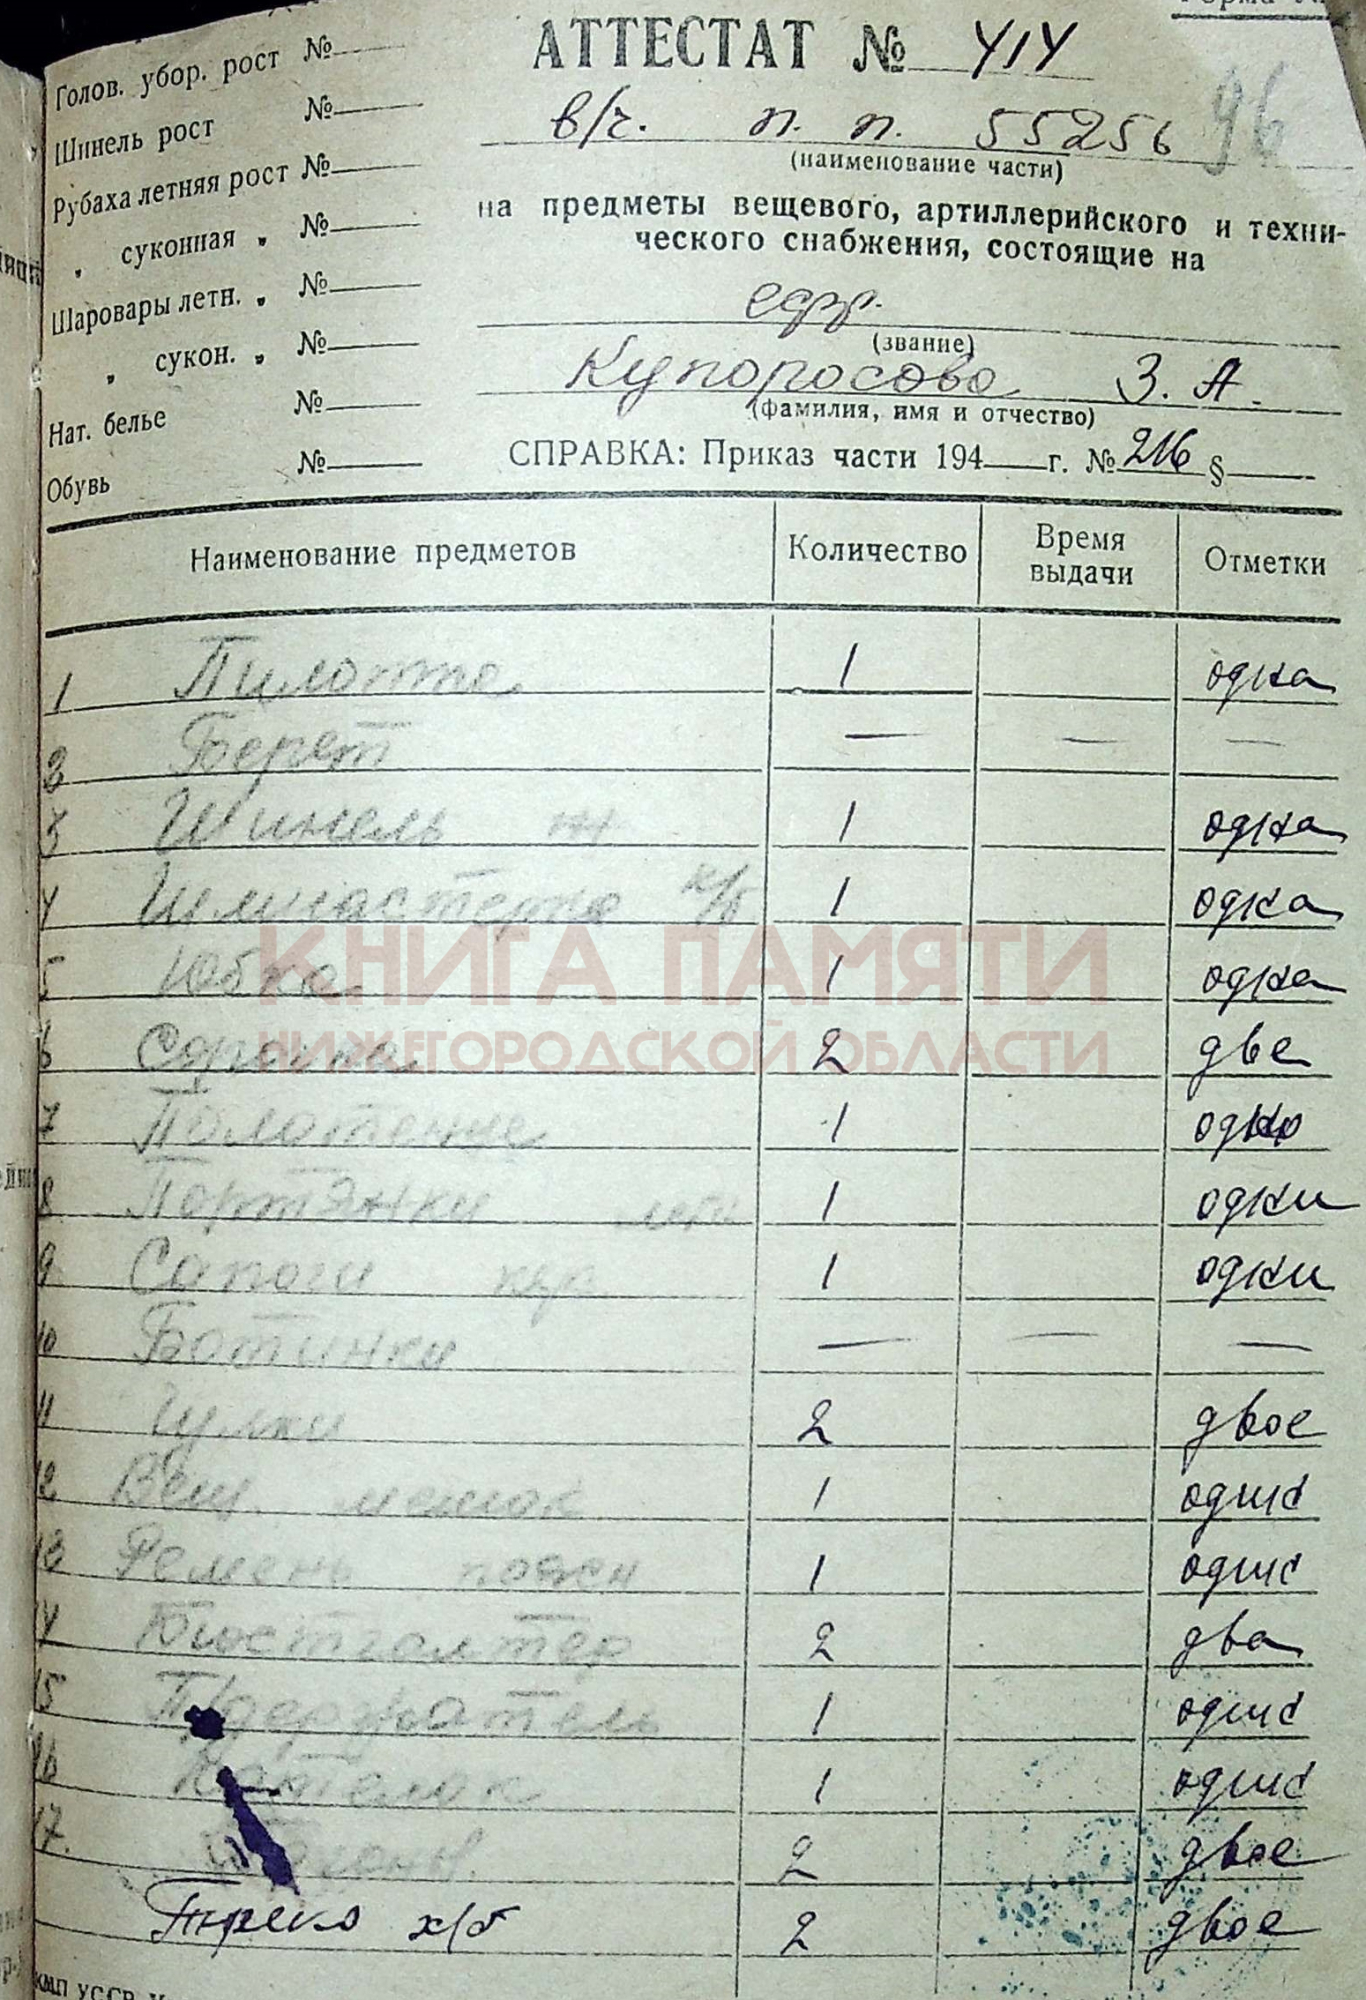 АТТЕСТАТ № 414
96
в/ч. п. п. 55256
(наименование части)
на предметы вещевого, артиллерийского и техни-
ческого снабжения, состоящие на
ефр.
(звание)
Купоросова З. А.
(фамилия, имя и отчество)
СПРАВКА: Приказ части 194 г. № 216 §
Голов. убор. рост №
Шинель рост №
Рубаха летняя рост №
„ суконная „ №
Шаровары летн. „ №
„ сукон. „ №
Нат. белье №
Обувь №
Наименование предметов Количество Время выдачи Отметки
1 Пилотка 1 одна
2 Берет — — —
3 Шинель 1 одна
4 Гимнастерка х/б 1 одна
5 Юбка 1 одна
КНИГА ПАМЯТИ
НИЖЕГОРОДСКОЙ ОБЛАСТИ
6 Сорочка 2 две
7 Полотенце 1 одно
8 Портянки летн 1 одни
9 Сапоги 1 одни
10 Ботинки — — —
11 Чулки 2 двое
12 Вещ. мешок 1 один
13 Ремень поясн 1 один
14 Бюстгалтер 2 два
15 1 один
16 Котелок 1 один
17. 2 двое
Трико х/б 2 двое